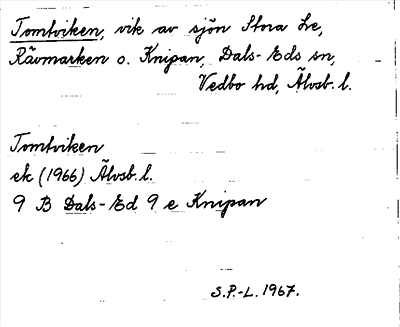 Tomtviken, vik av sjön Stora Le,
Rävmarken o. Knipan, Dals-Eds sn,
Vedbo hd, Älvsb. l.
Tomtviken
ek (1966) Älvsb. l.
9 B Dals-Ed 9 e Knipan
S.P.-L. 1967.